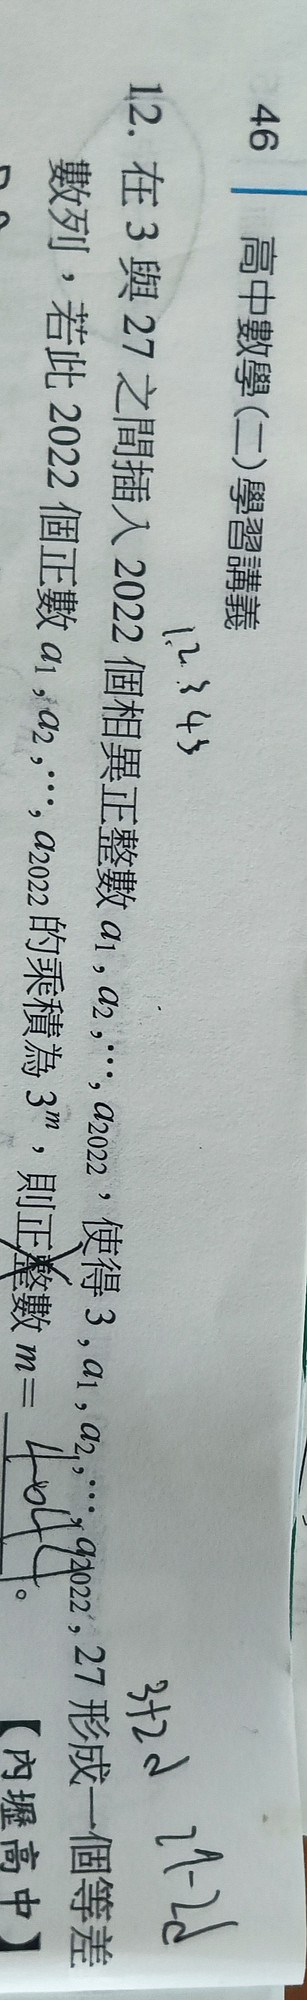 46 高中數學(二)學習講義
1.2.3 4 5
12. 在 3 與 27 之間插入 2022 個相異正整數 a₁, a₂, ⋯, a₂₀₂₂,使得 3, a₁, a₂, ⋯, a₂₀₂₂, 27 形成一個等差
3+2d 27-2d
數列,若此 2022 個正數 a₁, a₂, ⋯, a₂₀₂₂ 的乘積為 3ᵐ,則正整數 m = 。【內壢高中】